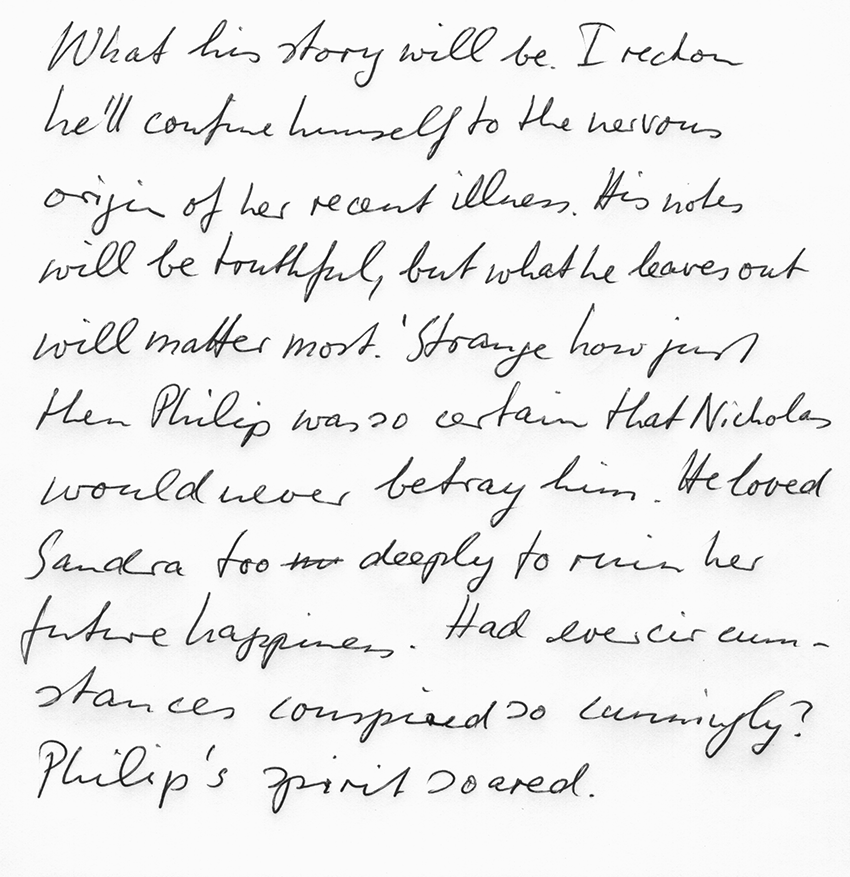 What his story will be. I reckon
he'll confine himself to the nervous
origin of her recent illness. His notes
will be truthful, but what he leaves out
will matter most.' Strange how just
then Philip was so certain that Nicholas
would never betray him. He loved
Sandra too deeply to ruin her
future happiness. Had ever circum-
stances conspired so cunningly?
Philip's spirit soared.